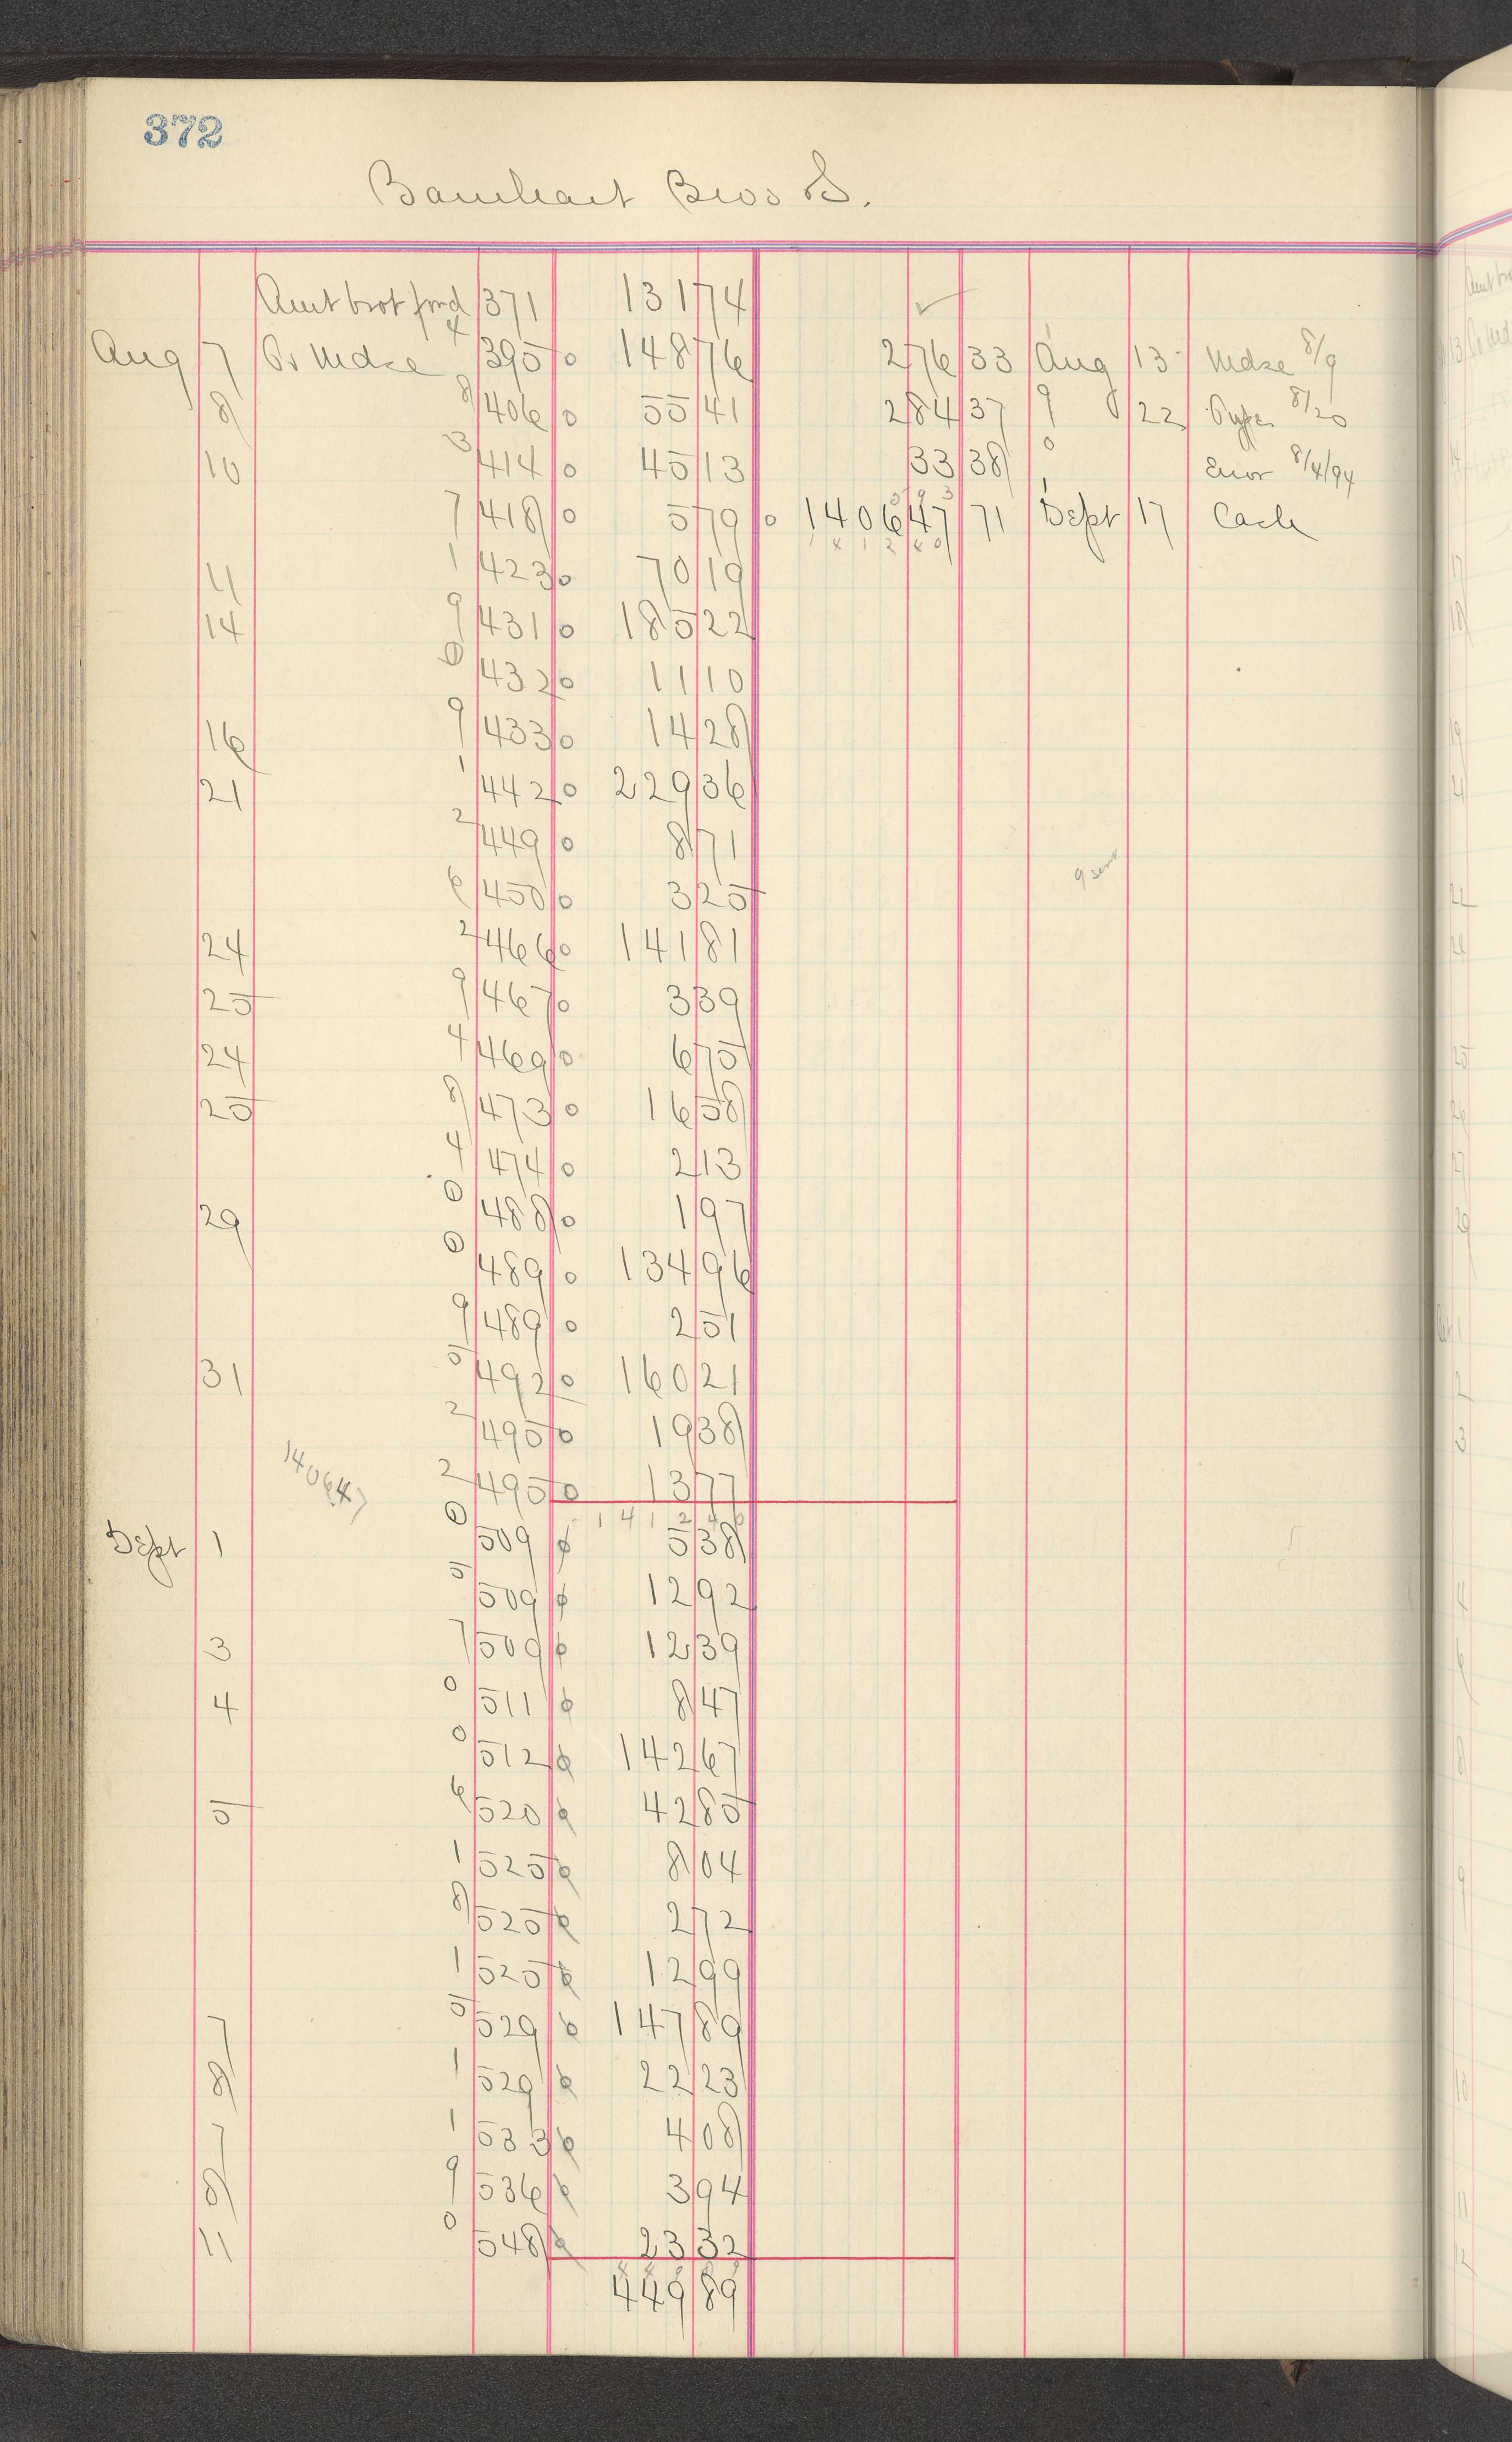 372
Barnhart Bros & S.
Amt brot ford 371 131 74
Aug 7 By Mdse 4 395 0 148 76 276 33 Aug 13 Mdse 8/9
8 8 406 0 55 41 284 37 9 22 Type 8/20
10 3 414 0 45 13 33 38 Error 8/4/94
7 418 0 5 79 0 1406 47 71 Sept 17 Cash
11 1 423 0 70 19
14 9 431 0 185 22
0 432 0 11 10
16 9 433 0 14 28
21 1 442 0 229 36
2 449 0 8 71
6 450 0 3 25
24 2 466 0 141 81
25 9 467 0 3 39
24 4 469 0 6 75
25 8 473 0 16 58
4 474 0 2 13
29 0 488 0 1 97
0 489 0 134 96
9 489 0 2 51
31 5 492 0 160 21
2 495 0 19 38
140647 2 495 0 13 77
1 4 1 2 4 0
Sept 1 0 509 5 38
5 509 12 92
3 7 509 12 39
4 0 511 8 47
0 512 142 67
5 6 520 42 85
1 525 8 04
8 525 2 72
1 525 12 99
7 5 529 147 89
8 1 529 22 23
7 1 533 4 08
8 9 536 3 94
11 0 548 23 32
449 89